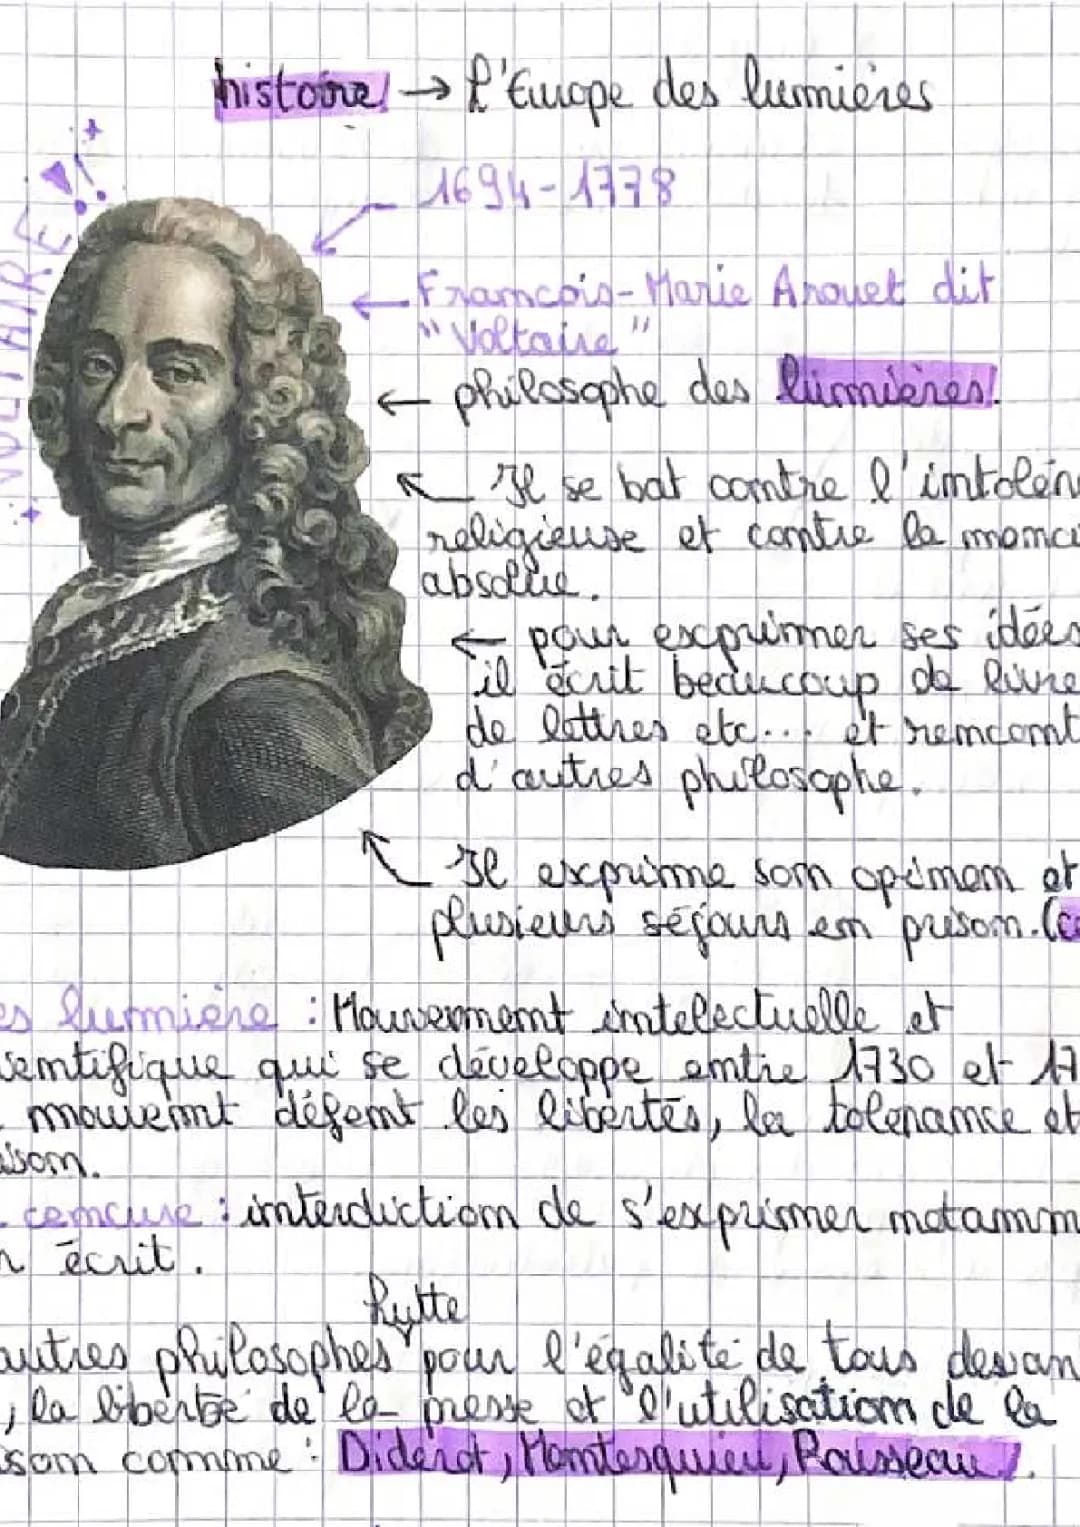 histoire → l'Europe des lumières
VOLTAIRE !!
1694-1778
Francois-Marie Arouet dit
"Voltaire"
philosophe des lumières.
Il se bat contre l'intolér
religieuse et contre la monar
absolue.
pour exprimer ses idées
il écrit beaucoup de livre
de lettres etc... et rencont
d'autres philosophe.
Il exprime son opinion et
plusieurs séjours en prison. (ce
es lumière : Mouvement intelectuelle et
ientifique qui se développe entre 1730 et 17
mouvemnt défent les libertés, la tolérance et
ison.
cencure : interdiction de s'exprimer notamm
écrit.
lutte
autres philosophes pour l'égalité de tous devan
, la liberté de la presse et l'utilisation de la
son comme : Diderot, Montesquieu, Rousseau.